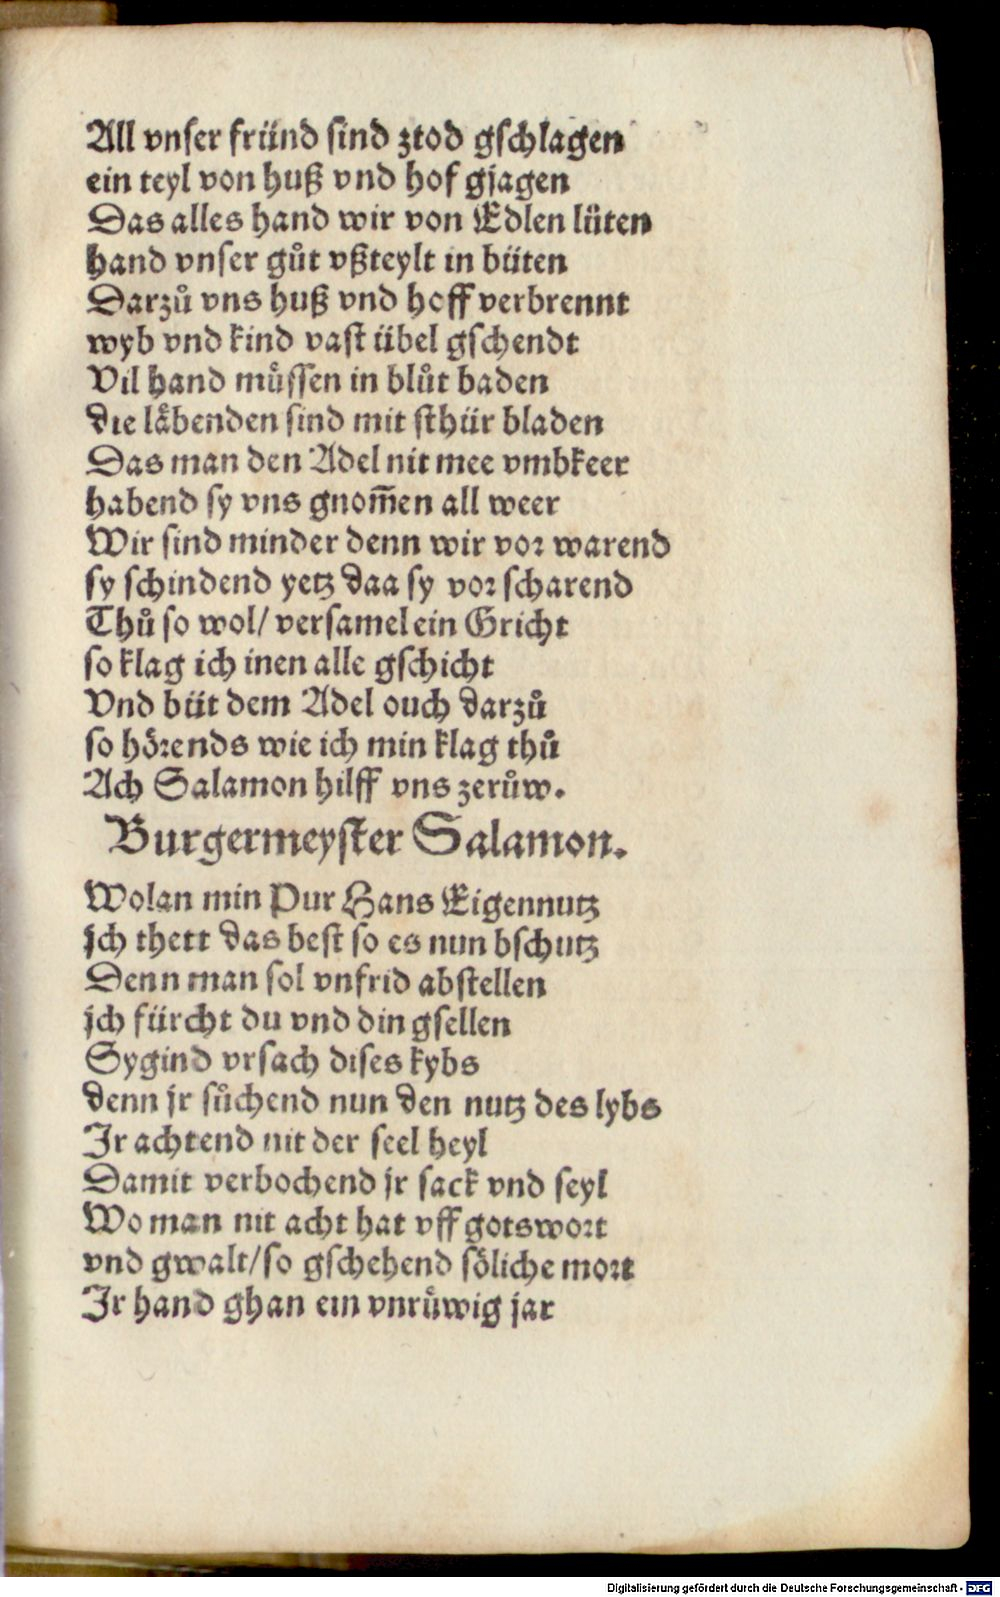 All vnser fründ sind ztod gschlagen
ein teyl von huß vnd hof gjagen
Das alles hand wir von Edlen lüten
hand vnser gůt vßteylt in büten
Darzů vns huß vnd hoff verbrennt
wyb vnd kind vast übel gschendt
Vil hand müssen in blůt baden
die läbenden sind mit sthür bladen
Das man den Adel nit mee vmbkeer
habend sy vns gnom̄en all weer
Wir sind minder denn wir vor warend
sy schindend yetz daa sy vor scharend
Thů so wol/ versamel ein Gricht
so klag ich inen alle gschicht
Vnd büt dem Adel ouch darzů
so hörends wie ich min klag thů
Ach Salamon hilff vns zerůw.
Burgermeyster Salamon.
Wolan min Pur Hans Eigennutz
jch thett das best so es nun bschutz
Denn man sol vnfrid abstellen
jch fürcht du vnd din gsellen
Sygind vrsach dises kybs
denn jr sůchend nun den nutz des lybs
Jr achtend nit der seel heyl
Damit verbochend jr sack vnd seyl
Wo man nit acht hat vff gotswort
vnd gwalt/so gschehend söliche mort
Jr hand ghan ein vnrůwig jar
Digitalisierung gefördert durch die Deutsche Forschungsgemeinschaft - DFG